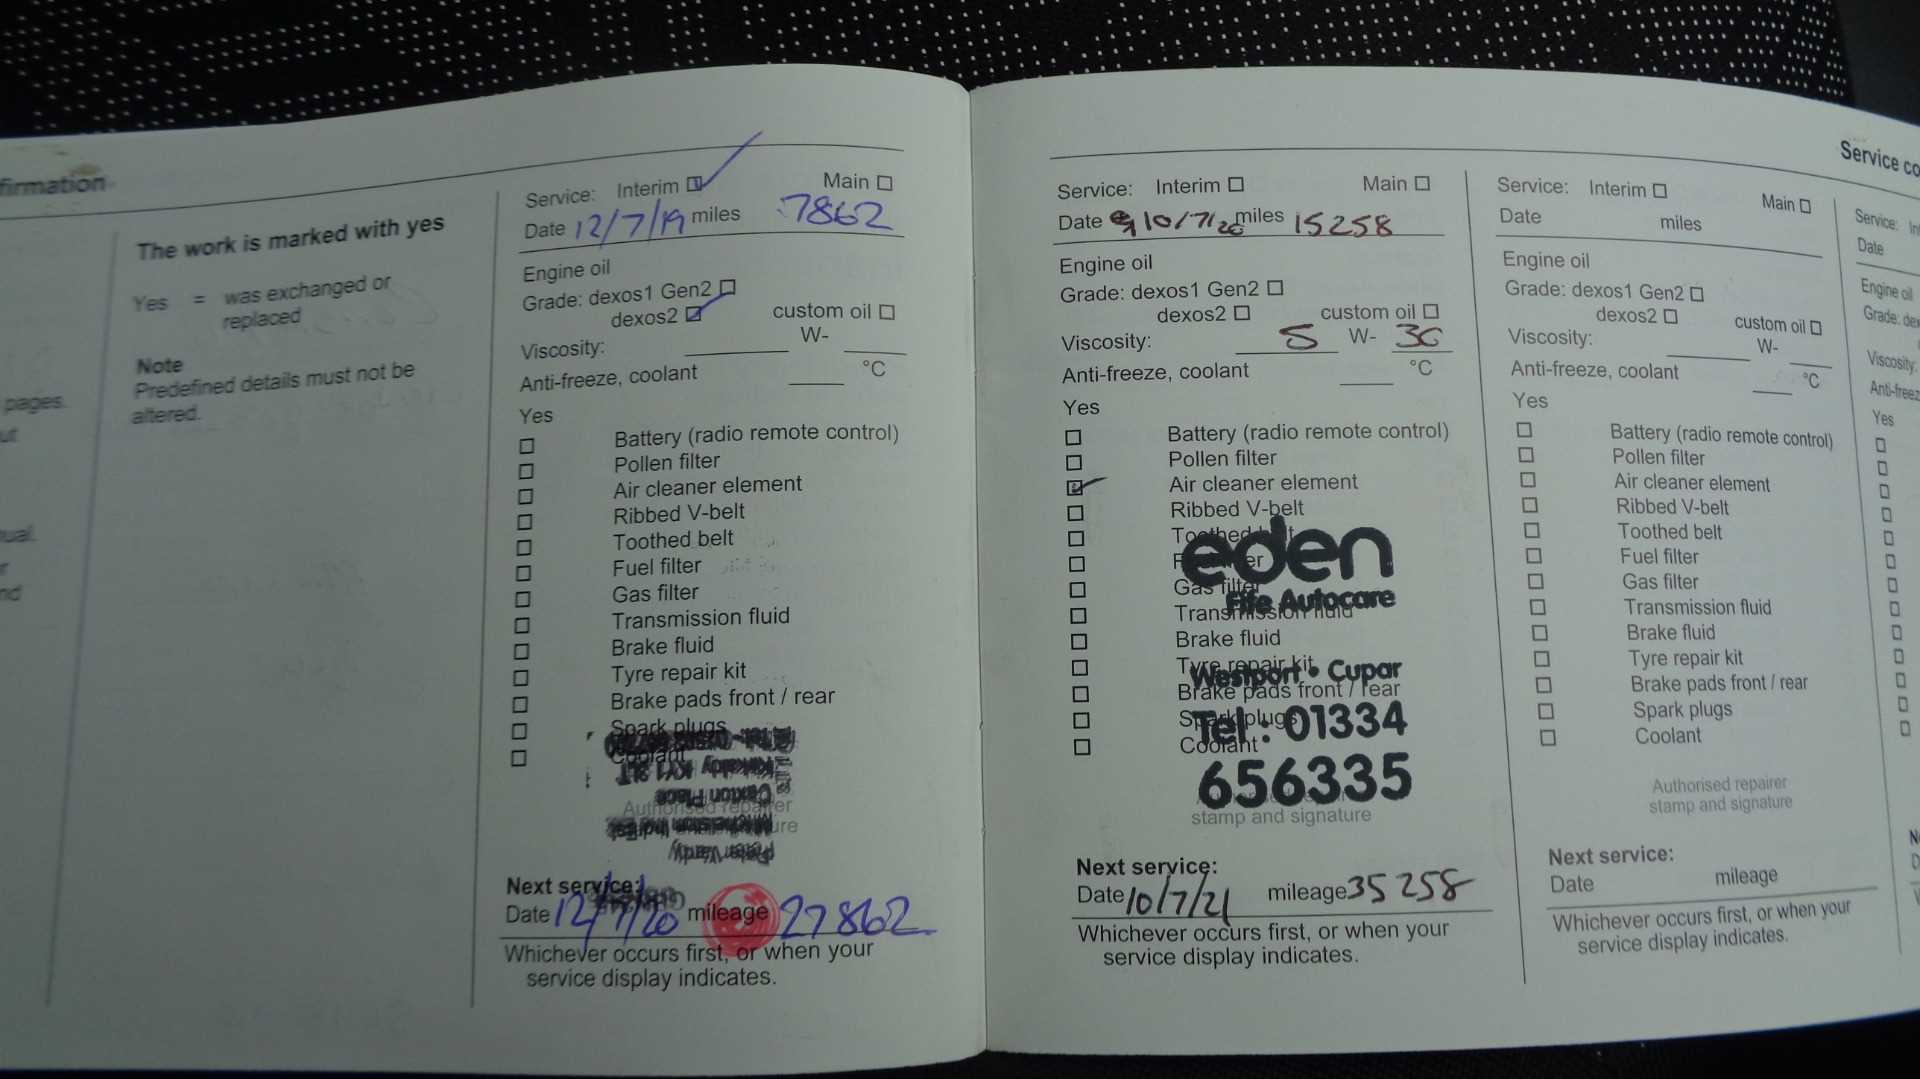 firmation
pages.
ut
ual.
r
nd
The work is marked with yes
Yes = was exchanged or
replaced
Note
Predefined details must not be
altered.
Service: Interim Main
Date 12/7/19 miles 7862
Engine oil
Grade: dexos1 Gen2
dexos2 custom oil
Viscosity: W-
Anti-freeze, coolant °C
Yes
Battery (radio remote control)
Pollen filter
Air cleaner element
Ribbed V-belt
Toothed belt
Fuel filter
Gas filter
Transmission fluid
Brake fluid
Tyre repair kit
Brake pads front / rear
Spark plugs
Coolant
Authorised repairer
Peter Vardy
Caxton Place
Kirkcaldy KY1
Next service:
Date 12/7/20 mileage 27862
Whichever occurs first, or when your
service display indicates.
Service: Interim Main
Date 10/7/20 miles 15258
Engine oil
Grade: dexos1 Gen2
dexos2 custom oil
Viscosity: 5 W- 30
Anti-freeze, coolant °C
Yes
Battery (radio remote control)
Pollen filter
Air cleaner element
Ribbed V-belt
Toothed belt
Fuel filter
Gas filter
Transmission fluid
Brake fluid
Tyre repair kit
Brake pads front / rear
Spark plugs
Coolant
eden
Fife Autocare
Westport • Cupar
Tel : 01334
656335
stamp and signature
Next service:
Date 10/7/21 mileage 35258
Whichever occurs first, or when your
service display indicates.
Service co
Service: Interim Main
Date miles
Engine oil
Grade: dexos1 Gen2
dexos2 custom oil
Viscosity: W-
Anti-freeze, coolant °C
Yes
Battery (radio remote control)
Pollen filter
Air cleaner element
Ribbed V-belt
Toothed belt
Fuel filter
Gas filter
Transmission fluid
Brake fluid
Tyre repair kit
Brake pads front / rear
Spark plugs
Coolant
Authorised repairer
stamp and signature
Next service:
Date mileage
Whichever occurs first, or when your
service display indicates.
Service: In
Date
Engine oil
Grade: dex
Viscosity:
Anti-freez
Yes